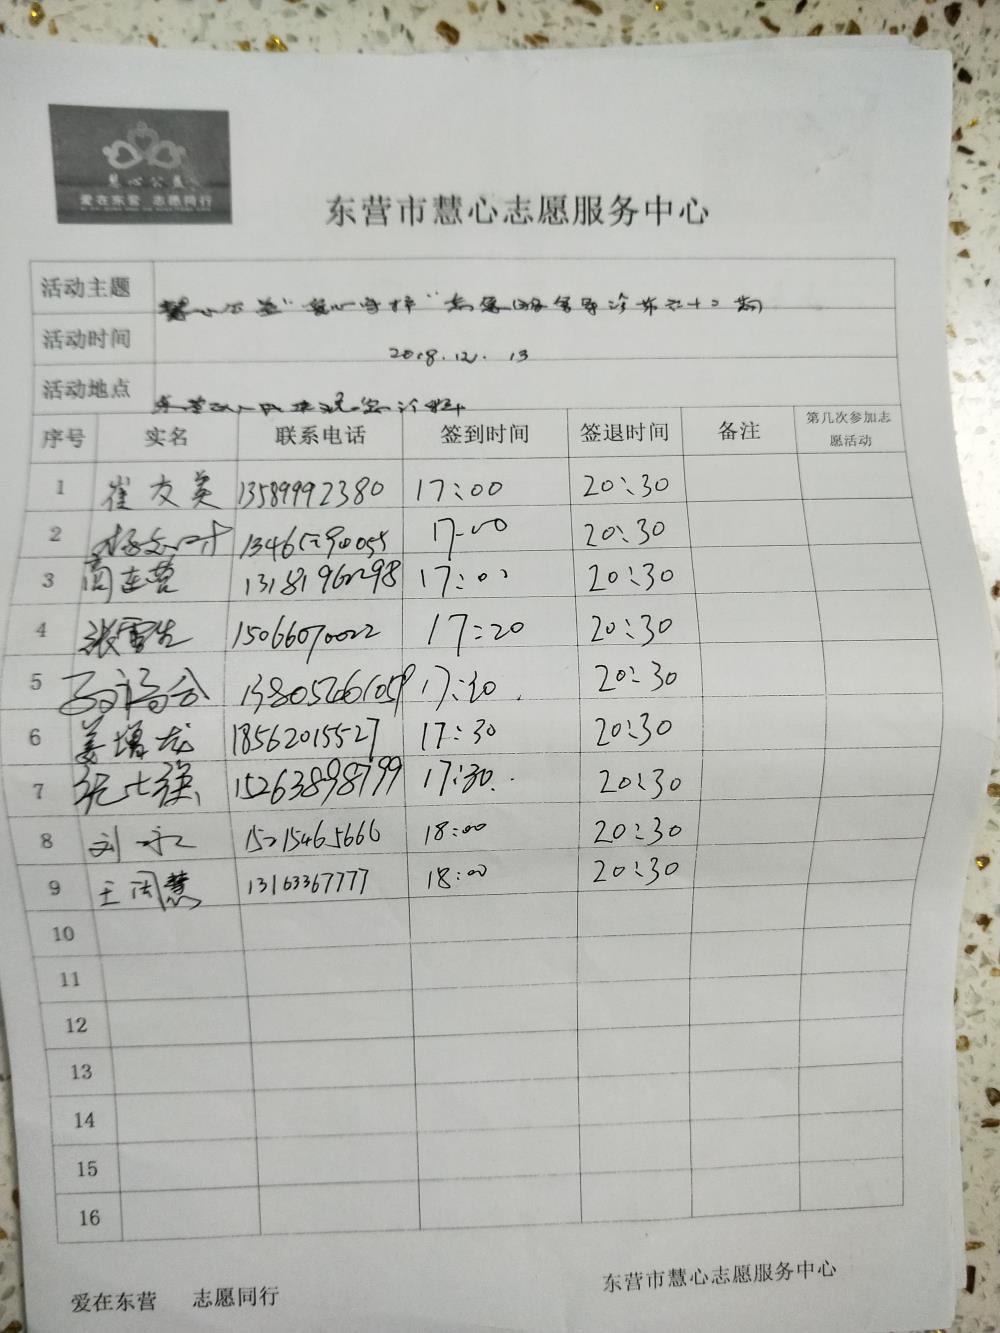 慧心公益
爱在东营 志愿同行
东营市慧心志愿服务中心
活动主题 慧心公益"慧心守护"志愿服务导诊第六十二期
活动时间 2018.12.13
活动地点
序号 实名 联系电话 签到时间 签退时间 备注 第几次参加志愿活动
1 崔友英 13589992380 17:00 20:30
2 17:00 20:30
3 高连营 13181960298 17:00 20:30
4 张雷生 15066070022 17:20 20:30
5 17:20 20:30
6 姜增龙 18562015527 17:30 20:30
7 15263898799 17:30. 20:30
8 刘永仁 15215465666 18:00 20:30
9 王闰慧 13163367777 18:00 20:30
10
11
12
13
14
15
16
爱在东营 志愿同行
东营市慧心志愿服务中心